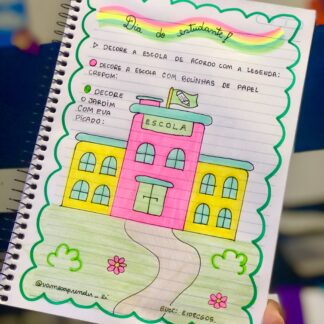 Dia do estudante!
▷ DECORE A ESCOLA DE ACORDO COM A LEGENDA:
DECORE A ESCOLA COM BOLINHAS DE PAPEL
CREPOM:
DECORE
O JARDIM
COM EVA
PICADO:
ESCOLA
@vamosaprender_ei